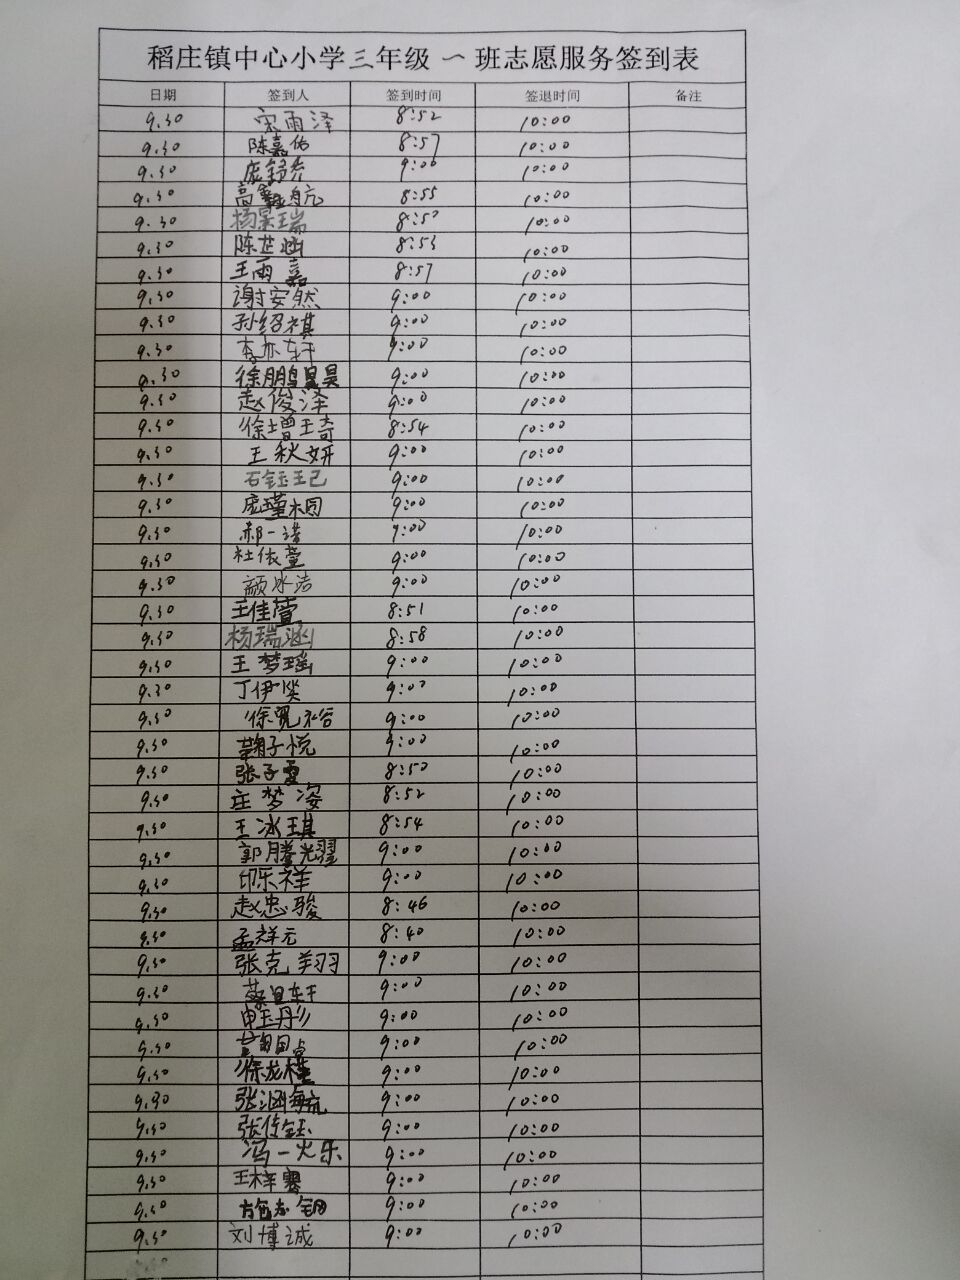 稻庄镇中心小学三年级 一 班志愿服务签到表
日期 签到人 签到时间 签退时间 备注
9.30 宋雨泽 8:52 10:00
9.30 陈嘉佑 8:57 10:00
9.30 庞舒乔 9:00 10:00
9.30 高 航 8:55 10:00
9.30 杨景瑞 8:50 10:00
9.30 陈芷涵 8:53 10:00
9.30 王雨嘉 8:57 10:00
9.30 谢安然 9:00 10:00
9.30 孙绍祺 9:00 10:00
9.30 李亦轩 9:00 10:00
9.30 徐鹏昊 9:00 10:00
9.30 赵俊泽 9:00 10:00
9.30 徐增琦 8:54 10:00
9.30 王秋妍 9:00 10:00
9.30 石钰玘 9:00 10:00
9.30 庞瑾桐 9:00 10:00
9.30 郝一诺 9:00 10:00
9.30 杜依萱 9:00 10:00
9.30 颜冰洁 9:00 10:00
9.30 王佳萱 8:51 10:00
9.30 杨瑞涵 8:58 10:00
9.30 王梦瑶 9:00 10:00
9.30 丁伊 9:00 10:00
9.30 徐宽裕 9:00 10:00
9.30 鞠子悦 9:00 10:00
9.30 张子雯 8:50 10:00
9.30 庄梦姿 8:52 10:00
9.30 王冰琪 8:54 10:00
9.30 郭腾耀 9:00 10:00
9.30 印乐祥 9:00 10:00
9.30 赵忠骏 8:46 10:00
9.30 孟祥元 8:40 10:00
9.30 张克翔 9:00 10:00
9.30 蔡宜轩 9:00 10:00
9.30 申玉彤 9:00 10:00
9.30 9:00 10:00
9.30 徐龙槿 9:00 10:00
9.30 张涵航 9:00 10:00
9.30 张佳钰 9:00 10:00
9.30 冯一烁 9:00 10:00
9.30 王梓骞 9:00 10:00
9.30 9:00 10:00
9.30 刘博诚 9:00 10:00